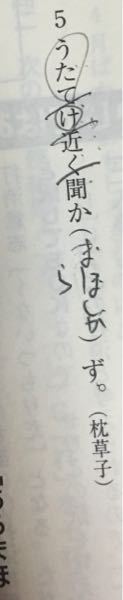 5
うだてけ近く聞か(まほしから)ず。(枕草子)